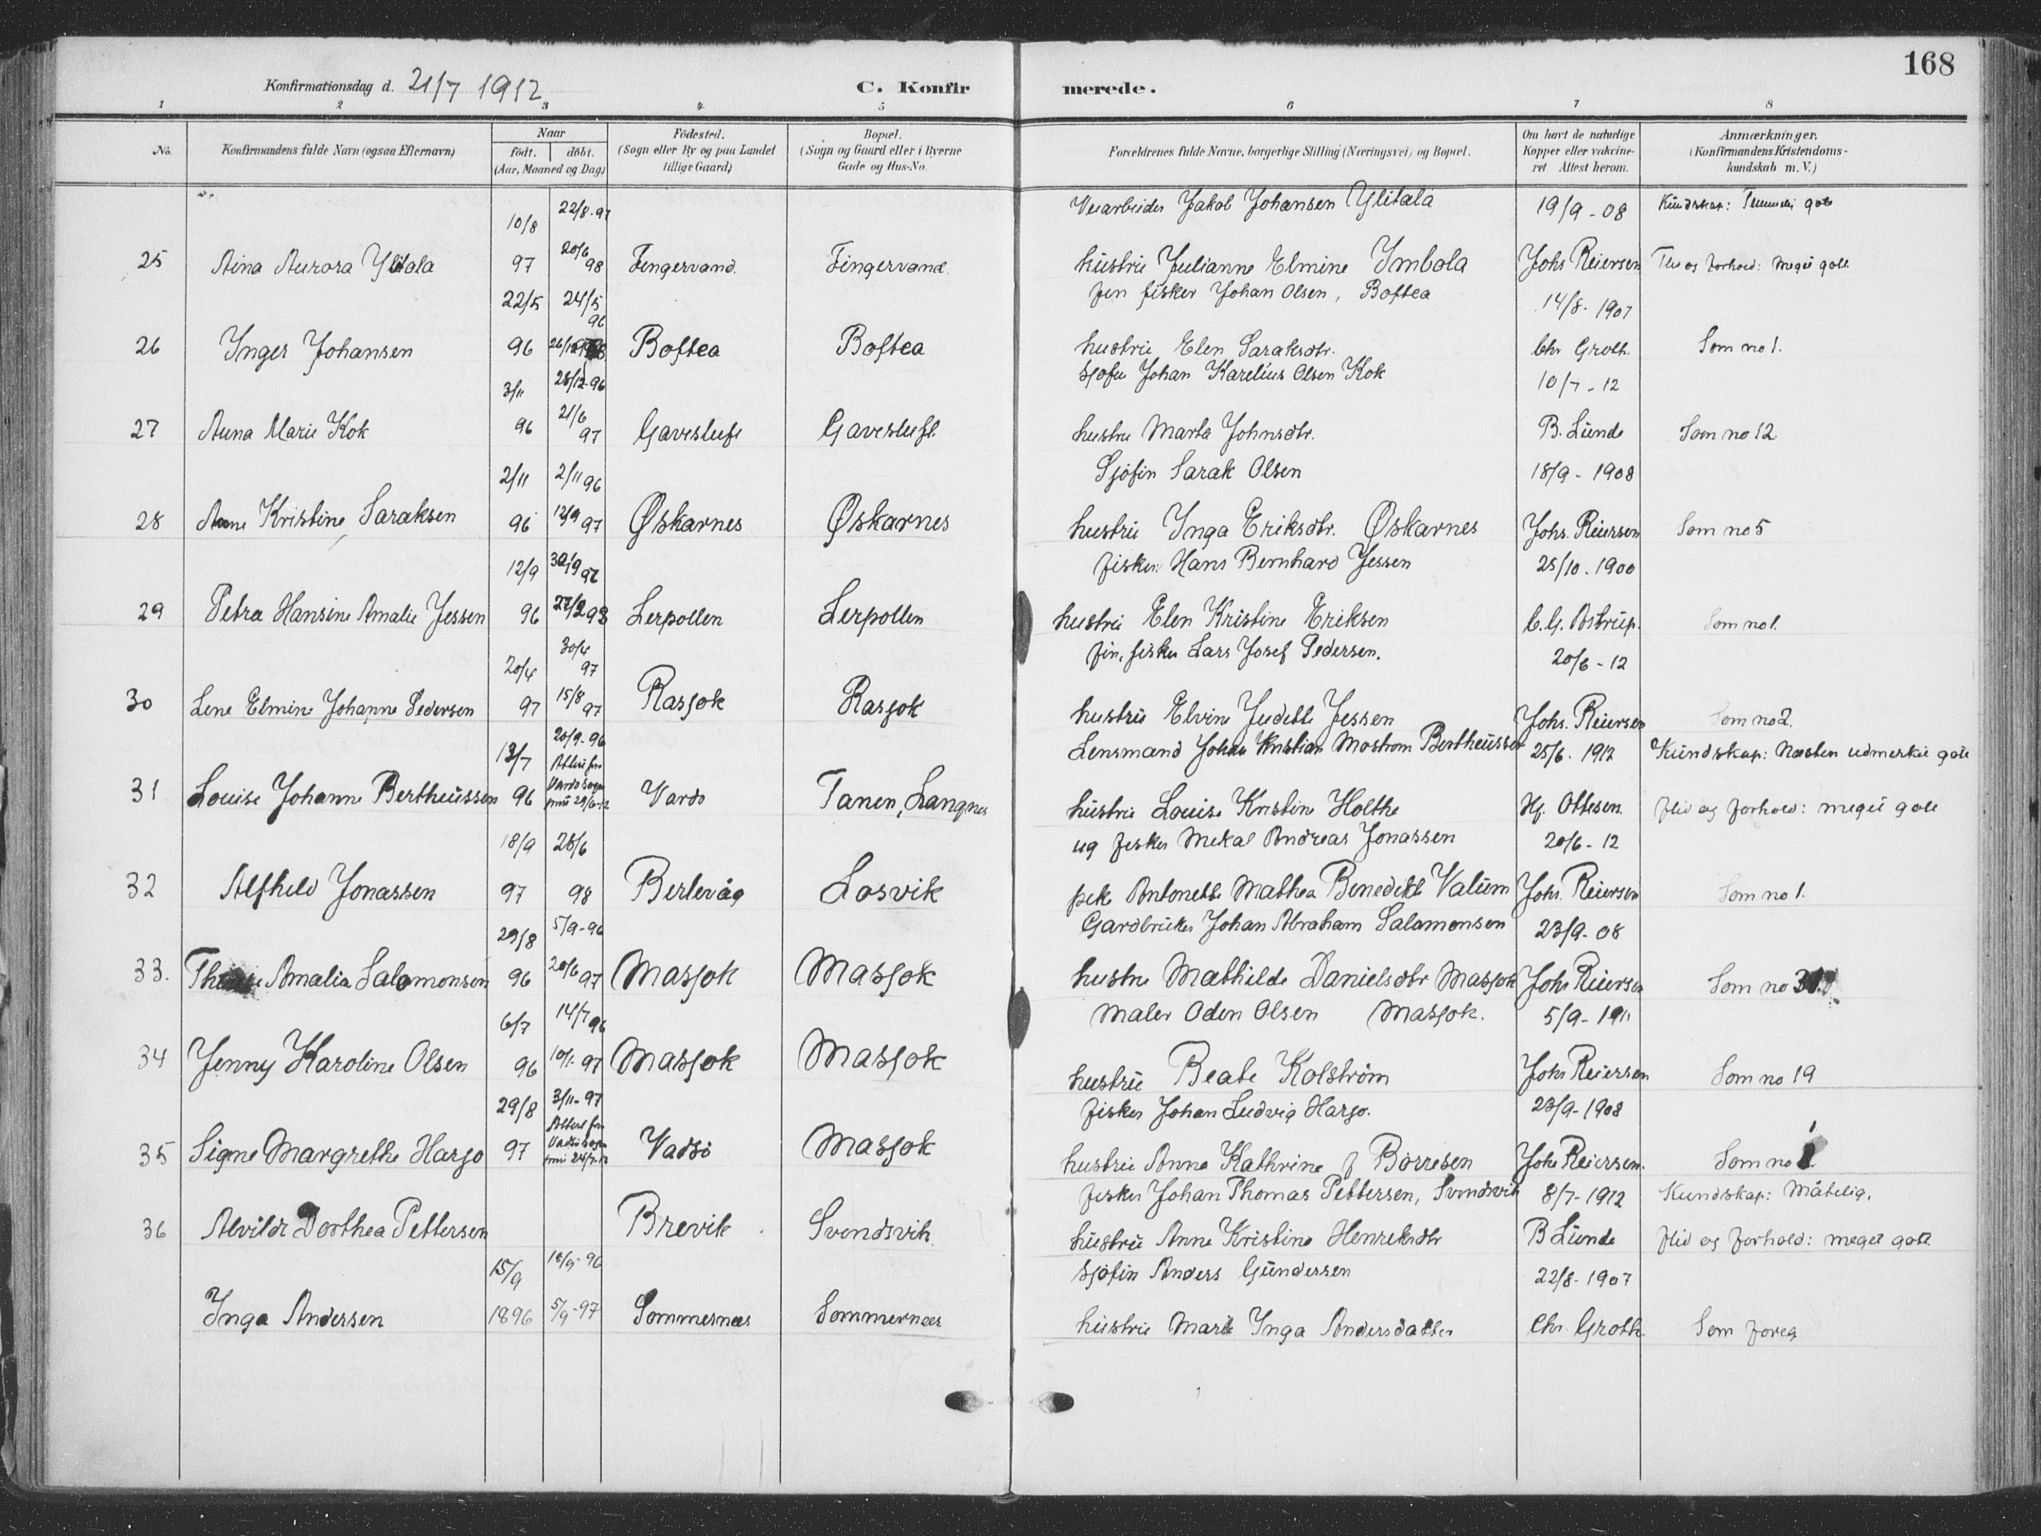 168
Konfirmationsdag d. 21/7 1912
C. Konfirmerede.
1 2 3 4 5 6 7 8
No.
Konfirmandens fulde Navn (ogsaa Efternavn)
Naar
født. døbt.
(Aar, Maaned og Dag)
Fødested.
(Sogn eller By og paa Landet
tillige Gaard)
Bopæl.
(Sogn og Gaard eller i Byerne
Gade og Hus-No.
Forældrenes fulde Navne, borgerlige Stilling (Næringsvei) og Bopæl.
Om havt de naturlige
Kopper eller vakcine-
ret Attest herom.
Anmærkninger.
(Konfirmandens Kristendoms-
kundskab m. V.)
10/8 22/8-97 Veiarbeider Jakob Johansen Ylitala 19/9-08 Kundskap: Temmeli godt
25 Aina Aurora Ylitala 97 20/6 98 Fingervand Fingervand hustru Julianne Elmine Imbola Johs Reiersen Flid og forhold: meget godt
22/5 24/5 96 fin fisker Johan Olsen, Boftea 14/8-1907
26 Inger Johansen 96 Boftea Boftea hustru Elen Saraksdtr. Chr Groth. Som no 1.
3/11 28/12-96 Sjøfin Johan Karelius Olsen Kok 10/7-12
27 Anna Marie Kok 96 21/6 97 Gavesluft Gavesluft hustru Marta Johnsdtr. B. Lunde Som no 12
2/11 2/11 96 Sjøfin Sarak Olsen 18/9-1908
28 Anne Kristine Saraksen 96 12/9 97 Øskarnes Øskarnes hustru Inga Eriksdtr. Øskarnes Johs. Reiersen Som no 5
12/9 30/9 96 fisker Hans Bernhard Jessen 25/10.1900
29 Petra Hansine Amalie Jessen 96 27/2 98 Lerpollen Lerpollen hustru Elen Kristine Eriksen C.G. Østrup. Som no 1.
20/4 30/4 97 fin. fisker Lars Josef Pedersen. 20/6-12
30 Lene Elmine Johanne Pedersen 97 15/8 97 Rasjok Rasjok hustru Elvine Judette Jessen Johs. Reiersen Som no 2.
13/7 20/9-96 Lensmand Johan Kristian Mostrøm Bertheussen 25/6.1912 Kundskap: Næsten udmerket godt
31 Louise Johanne Bertheussen 96 Attest fra Vardø sogn Vardø Tanen, Langnes hustru Louise Kristine Holthe Hj. Ottesen. flid og forhold: meget godt
18/9 28/6 ug fisker Mekal Andreas Jonassen 20/6-12
32 Alfhild Jonassen 97 98 Berlevåg Losvik pike Antonette Mathea Benedikte Valum Johs. Reiersen Som no 1.
29/8 5/9-96 Gardbruker Johan Abraham Salamonsen 23/9-08
33. Amalia Salomonsen 96 20/6 97 Masjok Masjok hustru Mathilde Danielsdtr Masjok Johs Reiersen Som no
6/7 14/7 96 Maler Oden Olsen Masjok. 5/9-1911
34 Jenny Karoline Olsen 96 10/1-97 Masjok Masjok hustru Beate Kolstrøm Johs Reiersen Som no 19
29/8 3/11-97 fisker Johan Ludvig Harjo. 23/9-1908
35 Signe Margrethe Harjo 97 Attest fra Vadsø sogn Vadsö Masjok hustru Anna Kathrine f Børresen Johs Reiersen. Som no 1
fisker Johan Thomas Pettersen, Svendsvik 8/7-1912 Kundskap: Måtelig.
36 Alvilde Dorthea Pettersen Brevik Svendsvik hustru Anne Kristine Henreksdtr B Lunde flid og forhold: meget godt
15/9 18/9-96 Sjøfin Anders Gundersen 22/8-1907
Inga Andersen 1896 5/9-97 Sommernes Sommernes hustru Marit Inga Andersdatter Chr. Groth. Som foreg